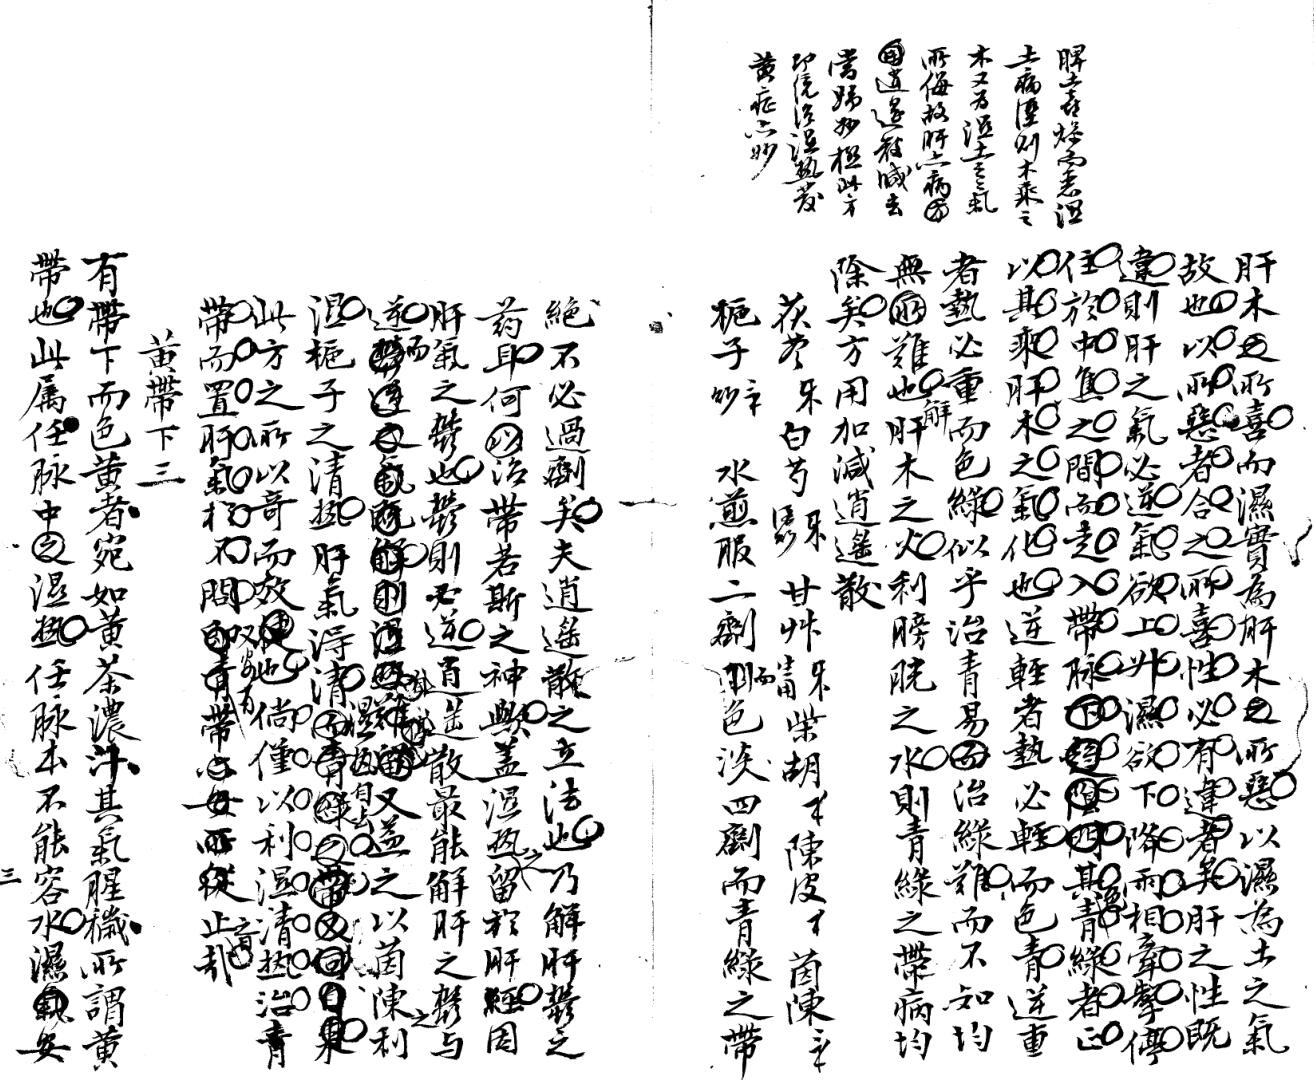 脾土喜燥而惡濕
土病濕則木乘之
木又為濕土之氣
所侮故肝亦病
用逍遙散減去
當歸妙極此方
即統治濕熱發
黃症亦妙
肝木之所喜而濕實為肝木之所惡以濕為土之氣
故也以所惡者合之所喜性必有違者矣肝之性既
違則肝之氣必逆氣欲上升濕欲下降兩相牽掣停
住於中焦之間而走入帶脉其青綠者正
以其乘肝木之氣化也逆輕者熱必輕而色青逆重
者熱必重而色綠似乎治青易而治綠難而不知均
無所難也解肝木之火利膀胱之水則青綠之帶病均
除矣方用加減逍遙散
茯苓 白芍 甘艸 柴胡 陳皮 茵陳
梔子炒 水煎服二劑而色淡四劑而青綠之帶
絕不必過劑矣夫逍遙散之立法也乃解肝鬱之
药耳何以治帶若斯之神歟蓋濕热留於肝經因
肝氣之鬱也鬱則必逆逍遙散最能解肝之鬱與
逆而又益之以茵陳利
濕梔子之清热肝氣得清
此方之所以奇而效也倘僅以利濕清热治青
帶而置肝氣於不問安有止哉
黃帶下三
有帶下而色黃者宛如黃茶濃汁其氣腥穢所謂黃
帶也此属任脉中之濕热也任脉本不能容水濕氣安
三